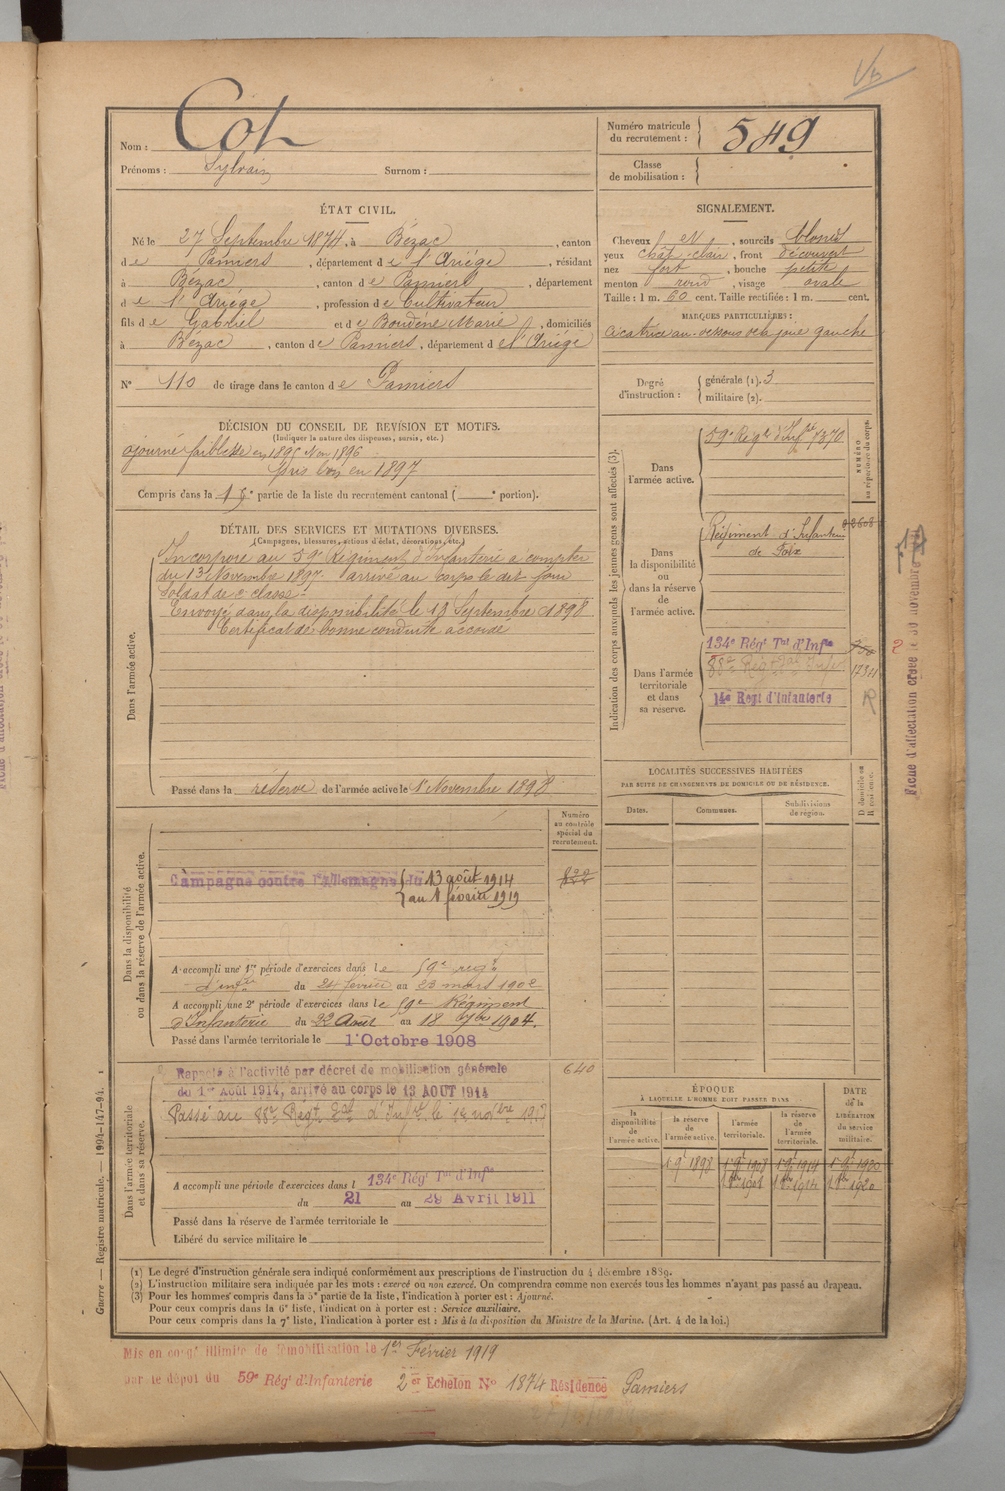 Nom : Cot
Prénoms : Sylvain Surnom :
Numéro matricule du recrutement : 549
Classe de mobilisation :
ÉTAT CIVIL.
Né le 27 Septembre 1874, à Bézac, canton
de Pamiers, département de l'Ariège, résidant
à Bézac, canton de Pamiers, département
de l'Ariège, profession de Cultivateur
fils de Gabriel et de Boudène Marie, domiciliés
à Bézac, canton de Pamiers, département de l'Ariège
N° 110 de tirage dans le canton de Pamiers
SIGNALEMENT.
Cheveux et, sourcils blonds
yeux chât. clair, front découvert
nez fort, bouche petite
menton rond, visage ovale
Taille : 1 m. 60 cent. Taille rectifiée : 1 m. cent.
MARQUES PARTICULIÈRES :
Cicatrice au-dessous de la joue gauche
Degré d'instruction :
générale (1). 3
militaire (2).
DÉCISION DU CONSEIL DE REVISION ET MOTIFS.
(Indiquer la nature des dispenses, sursis, etc.)
ajourné faiblesse en 1895 Non 1896
pris bon en 1897
Compris dans la partie de la liste du recrutement cantonal ( portion).
DÉTAIL DES SERVICES ET MUTATIONS DIVERSES.
(Campagnes, blessures, actions d'éclat, décorations, etc.)
Dans l'armée active.
Incorporé au 59e Régiment d'Infanterie à compter
du 13 Novembre 1897. arrivé au corps le dit jour
Soldat de 2e classe.
Envoyé dans la disponibilité le 19 Septembre 1898
Certificat de bonne conduite accordé
Passé dans la réserve de l'armée active le 1er Novembre 1898
Indication des corps auxquels les jeunes gens sont affectés (3).
NUMÉRO au répertoire du corps.
Dans l'armée active.
59e Régt d'Infrie 7370
Dans la disponibilité ou dans la réserve de l'armée active.
Régiment d'Infanterie
de Foix
Dans l'armée territoriale et dans sa réserve.
134e Régt Tal d'Infie
88e Régt
14e Régt d'Infanterie
R
Fiche d'affectation créée le 30 novembre
LOCALITÉS SUCCESSIVES HABITÉES
PAR SUITE DE CHANGEMENTS DE DOMICILE OU DE RÉSIDENCE.
Dates. Communes. Subdivisions de région. D domicile ou R résidence.
Dans la disponibilité ou dans la réserve de l'armée active.
Numéro au contrôle spécial du recrutement.
Campagne contre l'Allemagne du 13 août 1914
au 1 février 1919
A accompli une 1re période d'exercices dans le 59e régt
d'infie du 24 février au 23 mars 1902
A accompli une 2e période d'exercices dans le 59e Régiment
d'Infanterie du 22 Août au 18 7bre 1904.
Passé dans l'armée territoriale le 1er Octobre 1908
Dans l'armée territoriale et dans sa réserve.
Rappelé à l'activité par décret de mobilisation générale
du 1er Août 1914, arrivé au corps le 13 AOUT 1914
640
Passé au 88e Régt d'Infrie le 12 novbre 1917
A accompli une période d'exercices dans l 134e Régt Tal d'Infie
du 21 au 29 Avril 1911
Passé dans la réserve de l'armée territoriale le
Libéré du service militaire le
ÉPOQUE
À LAQUELLE L'HOMME DOIT PASSER DANS
la disponibilité de l'armée active. la réserve de l'armée active. l'armée territoriale. la réserve de l'armée territoriale.
DATE de la LIBÉRATION du service militaire.
(1) Le degré d'instruction générale sera indiqué conformément aux prescriptions de l'instruction du 4 décembre 1889.
(2) L'instruction militaire sera indiquée par les mots : exercé ou non exercé. On comprendra comme non exercés tous les hommes n'ayant pas passé au drapeau.
(3) Pour les hommes compris dans la 5e partie de la liste, l'indication à porter est : Ajourné.
Pour ceux compris dans la 6e liste, l'indication à porter est : Service auxiliaire.
Pour ceux compris dans la 7e liste, l'indication à porter est : Mis à la disposition du Ministre de la Marine. (Art. 4 de la loi.)
Guerre — Registre matricule. — 1994-147-94.
Mis en congé illimité de démobilisation le 1er Février 1919
par le dépôt du 59e Régt d'Infanterie 2e Echelon No 1874 Résidence Pamiers